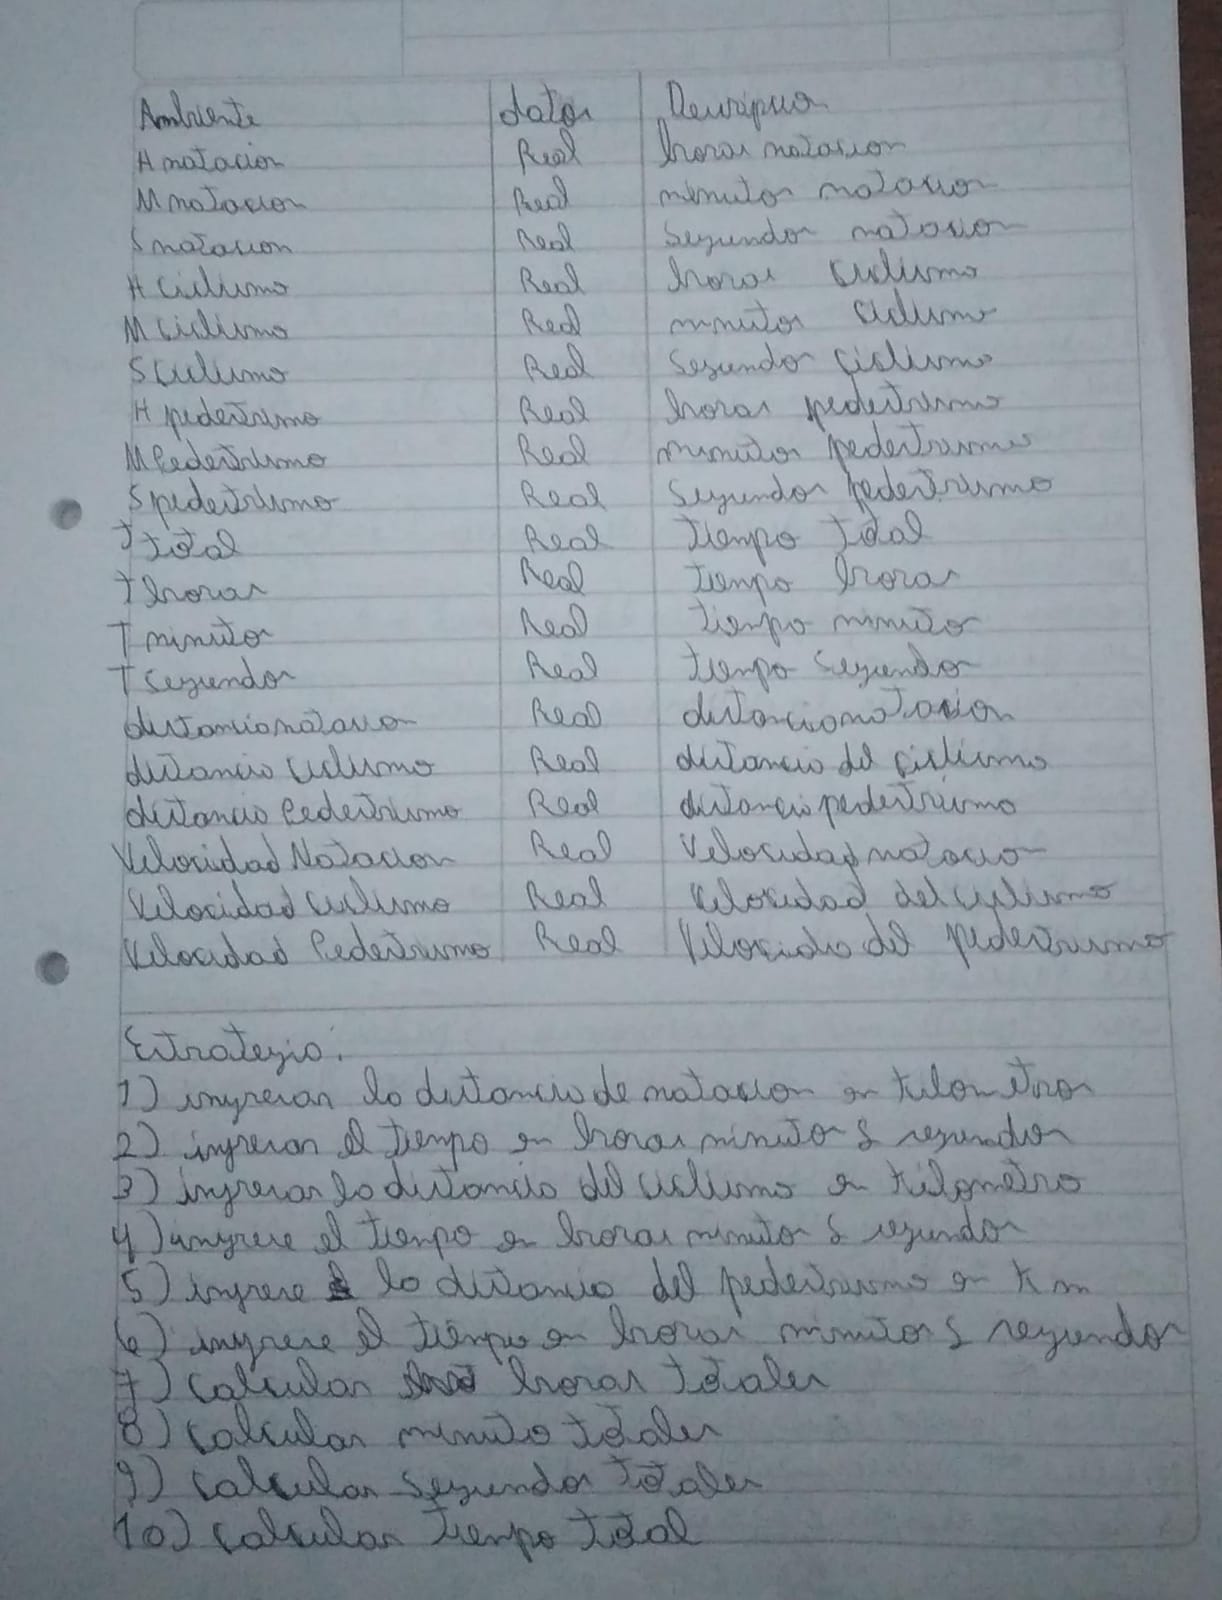 Ambiente datos Descripcion
H natacion Real horas natacion
M natacion Real minutos natacion
S natacion Real segundos natacion
H Ciclismo Real horas ciclismo
M Ciclismo Real minutos ciclismo
S Ciclismo Real Segundo Ciclismo
H pedestrismo Real horas pedestrismo
M Pedestrismo Real minutos pedestrismo
S pedestrismo Real segundos pedestrismo
T total Real tiempo total
T horas Real tiempo horas
T minutos Real tiempo minuto
T segundos Real tiempo segundo
distancia natacion Real distancia natacion
distancia ciclismo Real distancia del ciclismo
distancia Pedestrismo Real distancia pedestrismo
Velocidad Natacion Real Velocidad natacion
Velocidad ciclismo Real Velocidad del ciclismo
Velocidad Pedestrismo Real Velocida del pedestrismo
Estrategia:
1) ingresar la distancia de natacion en kilometros
2) ingresar el tiempo en horas minutos & segundos
3) ingresar la distancia del ciclismo en kilometro
4) ingrese el tiempo en horas minutos & segundos
5) ingrese la distancia del pedestrismo en Km
6) ingrese el tiempo en horas minutos & segundos
7) calcular horas totales
8) calcular minuto totales
9) calcular segundos totales
10) calcular tiempo total